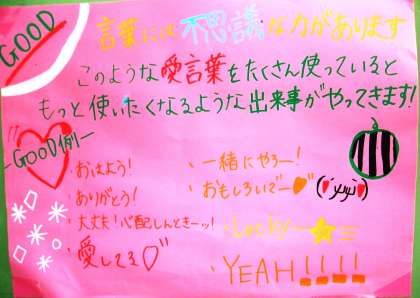 GOOD
言葉には不思議な力があります
このような愛言葉をたくさん使っていると
もっと使いたくなるような出来事がやってきます!
-GOOD例-
・おはよう!
・ありがとう!
・大丈夫!心配しんときーッ!
・愛してる♡
・一緒にやろー!
・おもしろいでー
・Lucky─★
・YEAH!!!!!